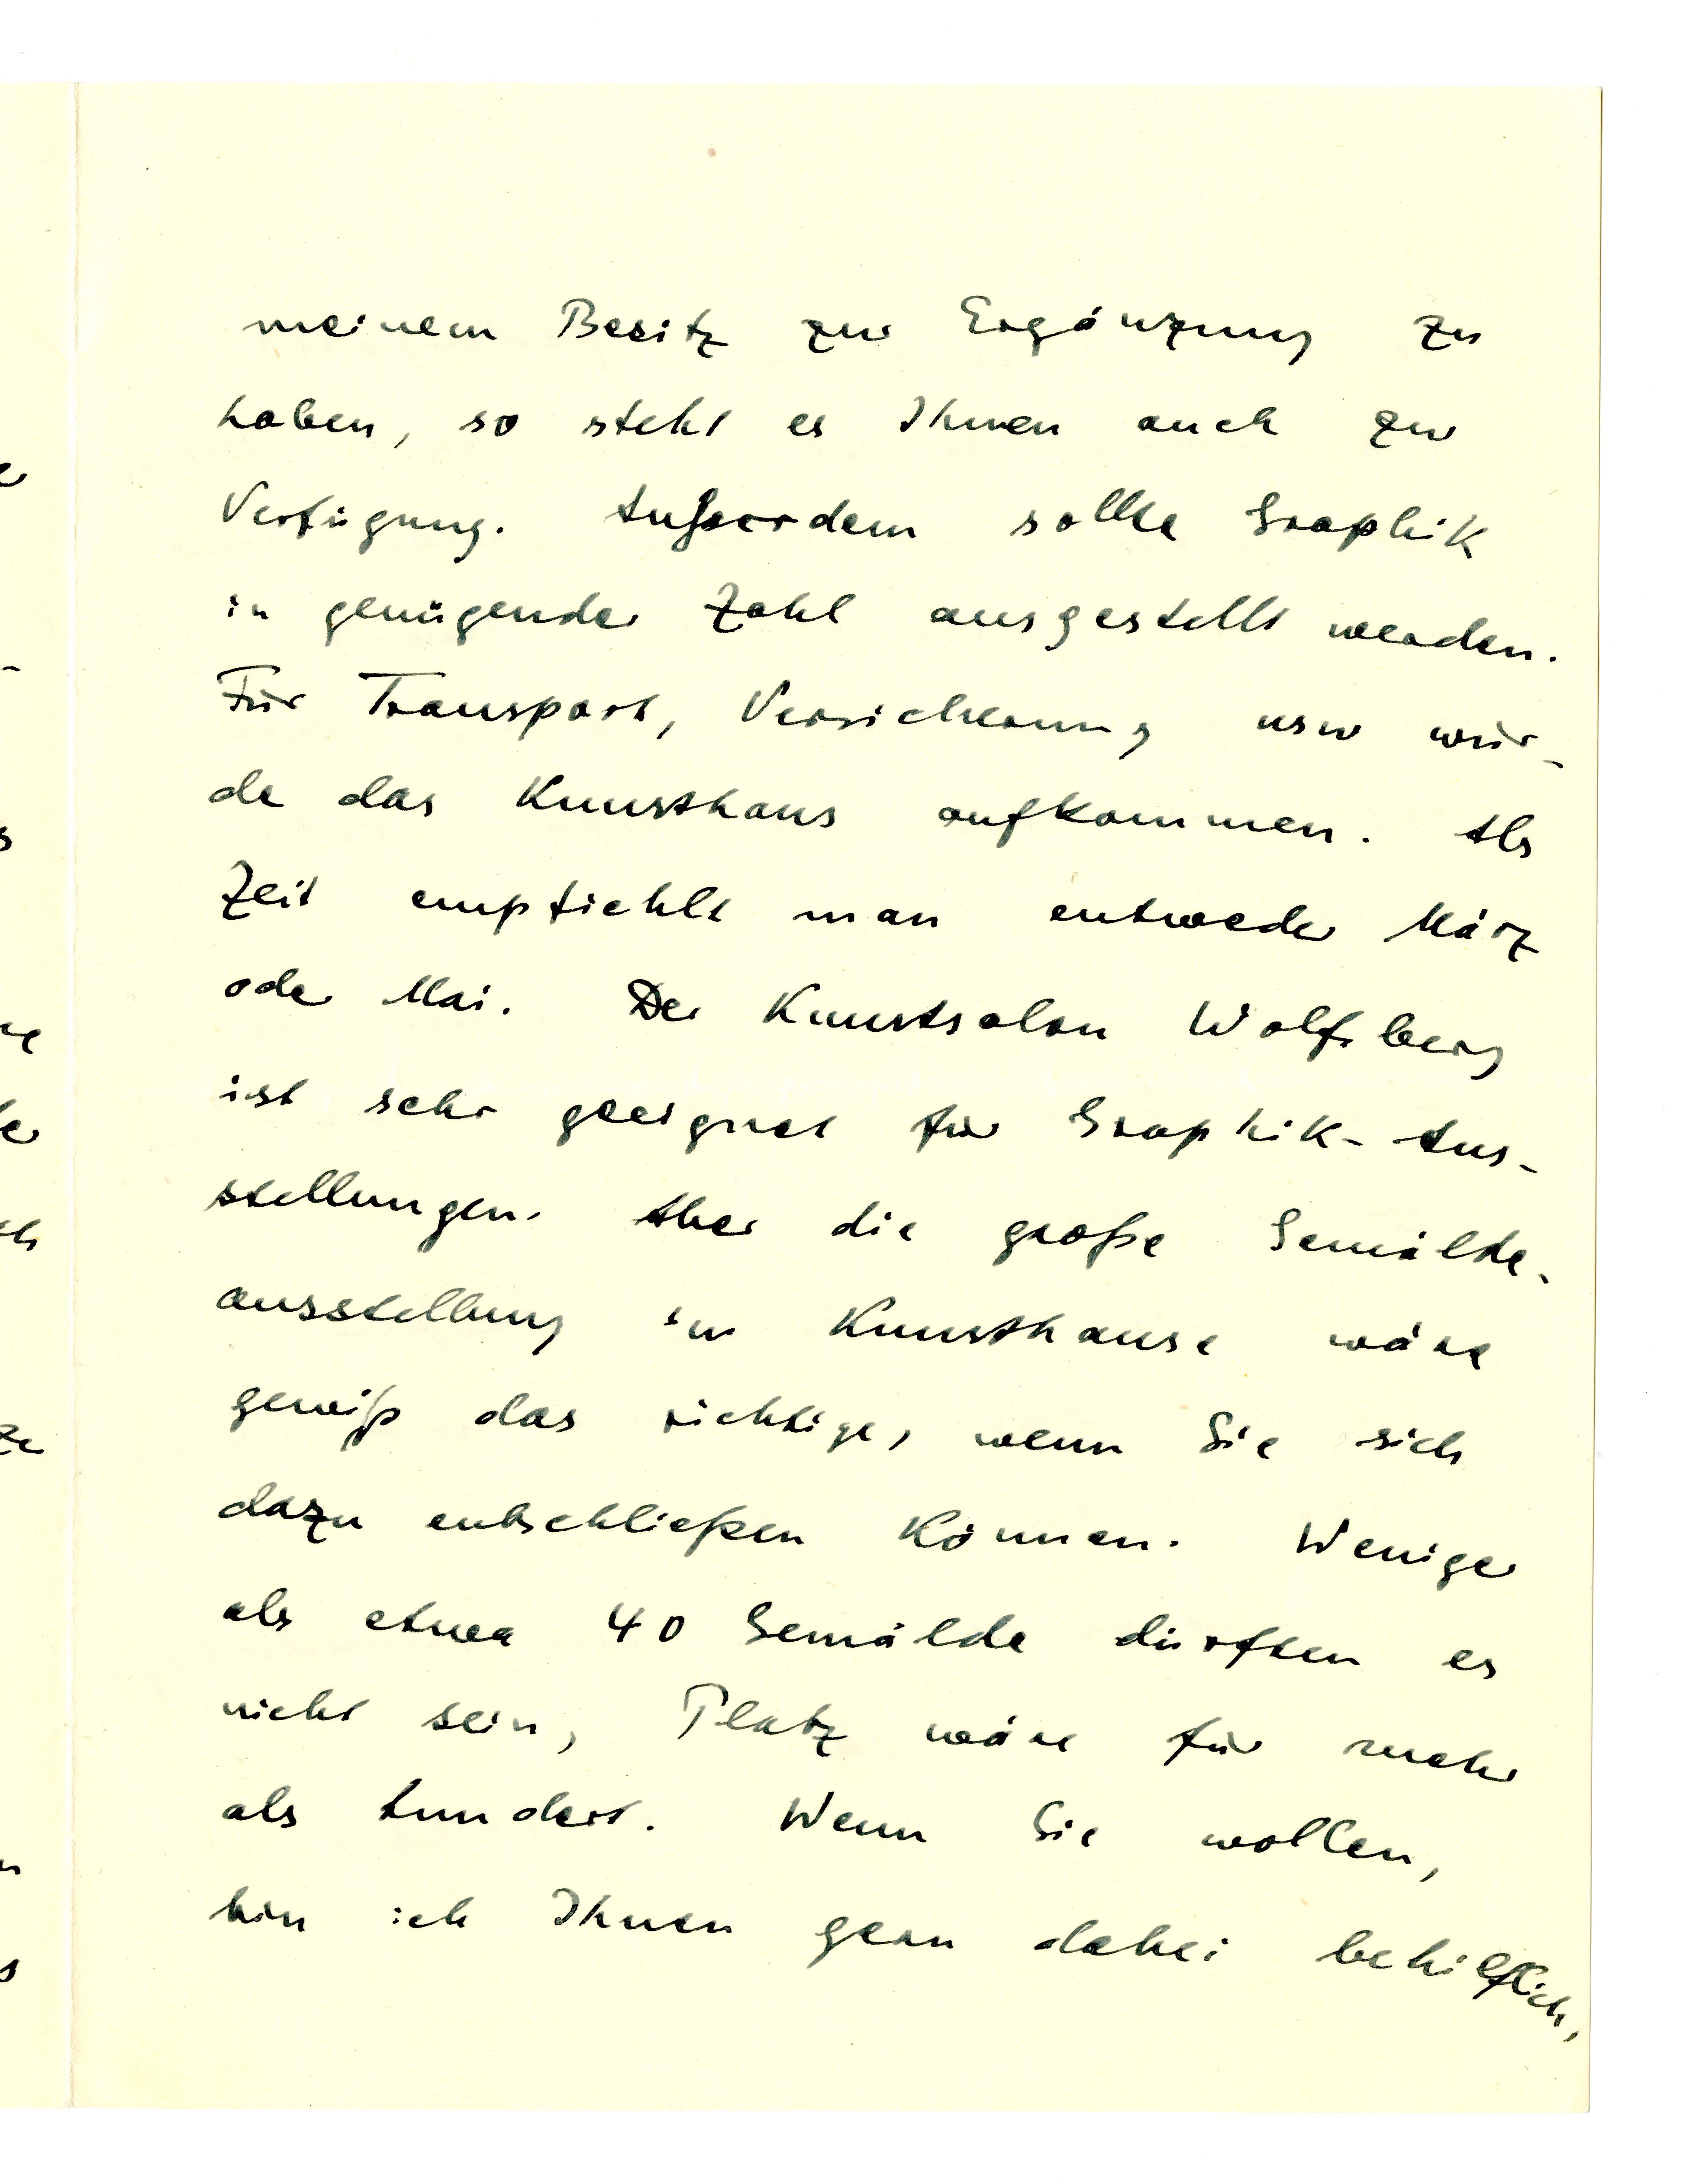 meinem Besitz zur Ergänzung zu
haben, so steht es Ihnen auch zur
Verfügung. Außerdem sollte Graphik
in genügender Zahl ausgestellt werden.
Für Transport, Versicherung usw wür-
de das Kunsthaus aufkommen. Als
Zeit empfiehlt man entweder März
oder Mai. Der Kunstsalon Wolfsberg
ist sehr geeignet für Graphik-Aus-
stellungen. Aber die große Gemälde-
ausstellung im Kunsthause wäre
gewiß das richtige, wenn Sie sich
dazu entschließen können. Weniger
als etwa 40 Gemälde dürften es
nicht sein, Platz wäre für mehr
als hundert. Wenn Sie wollen,
bin ich Ihnen gern dabei behilflich,